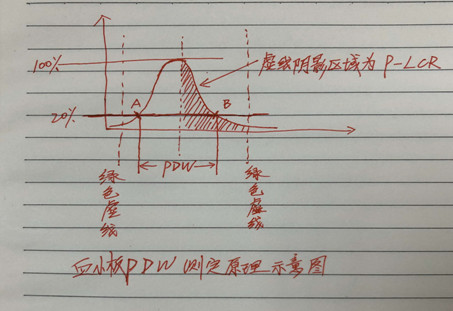 100%
虚线阴影区域为 P-LCR
20%
A
B
PDW
绿色虚线
绿色虚线
血小板PDW 测定原理示意图